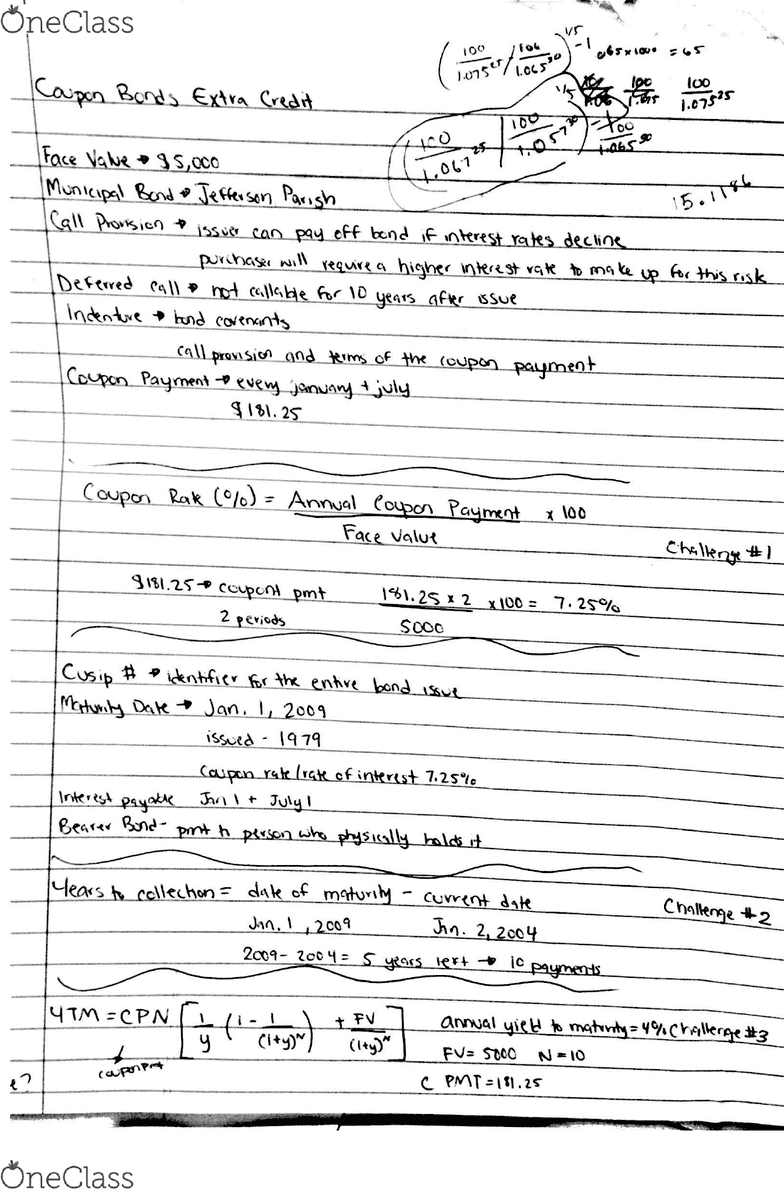 OneClass
(100/1.075^25 / 106/1.065^30)^1/5 -1 .065 x 1000 = 65
100/1.075 100/1.075^25
(100/1.067^25 | 100/1.057^30)^1/5 -1 100/1.065^30
15.1186
Coupon Bonds Extra Credit
Face Value → $5,000
Municipal Bond → Jefferson Parish
Call Provision → issuer can pay off bond if interest rates decline
purchaser will require a higher interest rate to make up for this risk
Deferred call → not callable for 10 years after issue
Indenture → bond covenants
call provision and terms of the coupon payment
Coupon Payment → every january + july
$181.25
Coupon Rate (%) = Annual Coupon Payment x 100
Face Value
Challenge #1
$181.25 → coupont pmt 181.25 x 2 x100 = 7.25%
2 periods 5000
Cusip # → identifier for the entire bond issue
Maturity Date → Jan. 1, 2009
issued - 1979
coupon rate/rate of interest 7.25%
Interest payable Jan 1 + July 1
Bearer Bond - pmt to person who physically holds it
Years to collection = date of maturity - current date
Challenge #2
Jan. 1, 2009 Jan. 2, 2004
2009 - 2004 = 5 years left → 10 payments
YTM = CPN [1/y (1 - 1/(1+y)^N) + FV/(1+y)^N] annual yield to maturity = 4% Challenge #3
coupon pmt FV = 5000 N = 10
e? C PMT = 181.25
OneClass